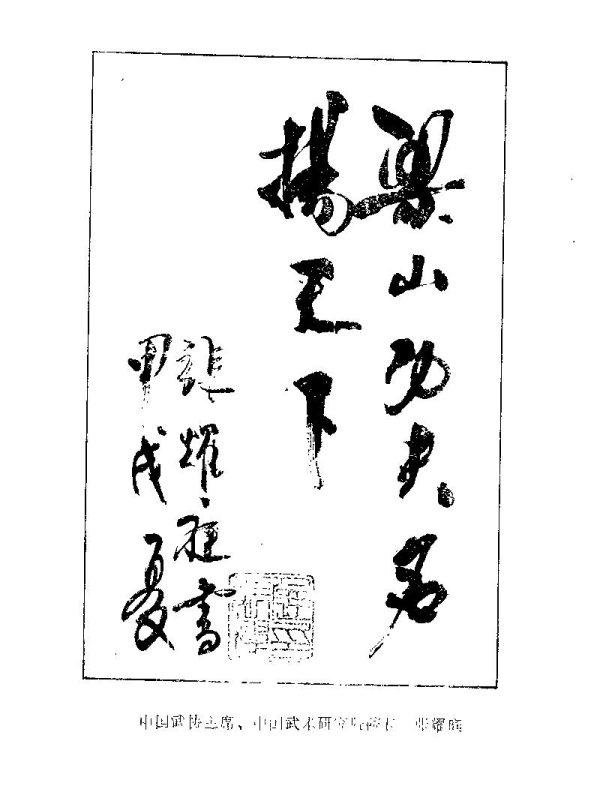 梁山功夫名
扬天下
张耀庭书
甲戌夏
中国武协主席、中国武术研究院院长 张耀庭